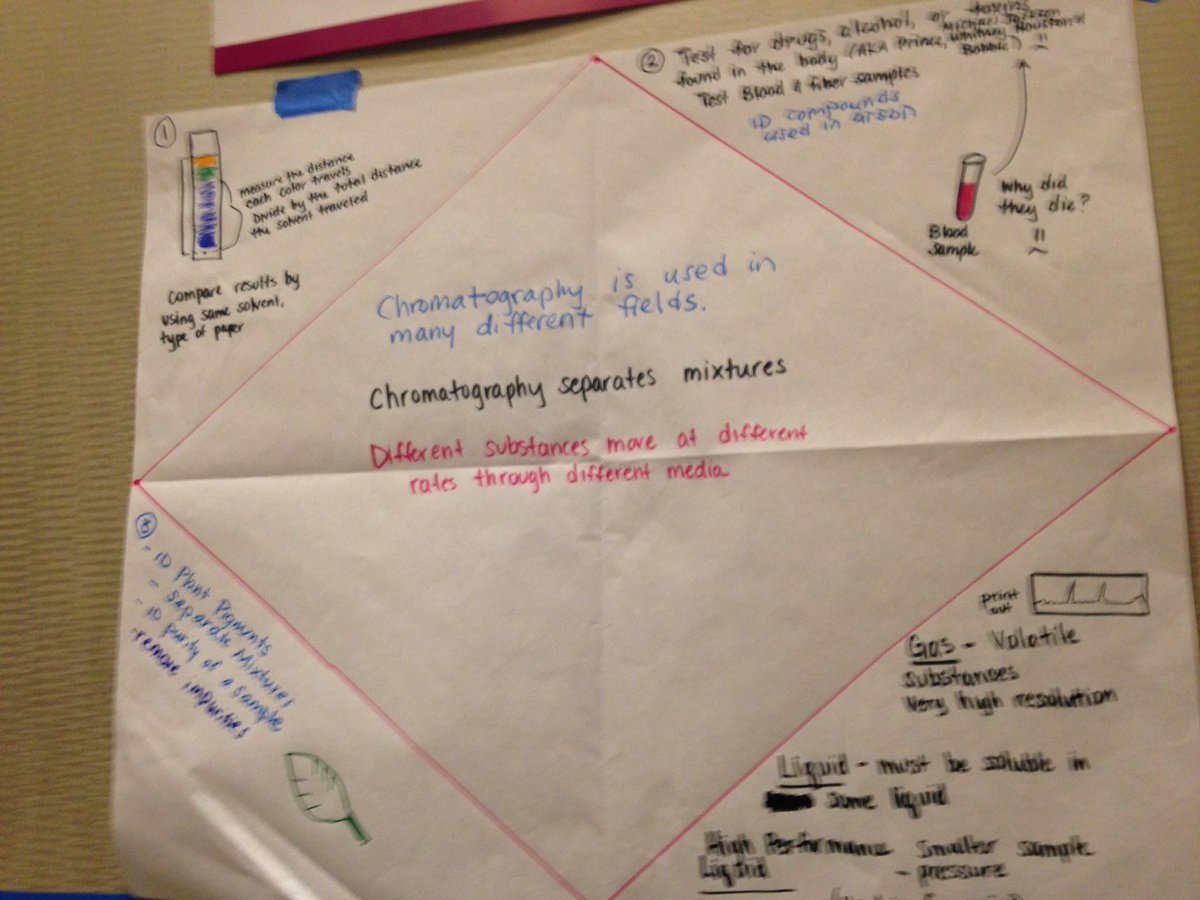 ①
measure the distance
each color travels
Divide by the total distance
the solvent traveled
Compare results by
using same solvent,
type of paper
② Test for drugs, alcohol, or toxins
found in the body (AKA Prince, Michael Jackson
Whitney Houston &
Bobbie)
Test Blood & fiber samples
ID compounds
used in arson
Why did
they die?
Blood
Sample
Chromatography is used in
many different fields.
Chromatography separates mixtures
Different substances move at different
rates through different media
③
- ID Plant Pigments
- separate Mixtures
- ID purity of a sample
- remove impurities
print
out
Gas - Volatile
substances
Very high resolution
Liquid - must be soluble in
some liquid
High Performance smaller sample
Liquid - pressure